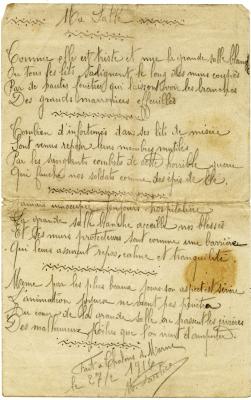 Ma Salle
Comme elle est triste et nue la grande salle blanche
Où tous les lits s'alignent le long des murs
Par de hautes fenêtres qui laissent voir les branches
Des grands marronniers effeuillés
Combien d'infortunés dans ces lits de misère
Sont venus reposer leurs membres mutilés
Par les sanglants combats de cette horrible guerre
Qui fauche nos soldats comme des épis de blé.
Jamais inoccupée toujours hospitalière
La grande salle blanche accueille nos blessés
Et ses murs protecteurs sont comme une barrière
Qui leur assurent repos, calme et tranquillité
Même par les plus beaux jours son aspect est sévère
L'animation joyeuse ne vient pas
Au cours de la grande salle où passent les civières
Des malheureux Poilus que l'on vient d'amputer.
Fait à Chalons s/ Marne
le 27/2 1916